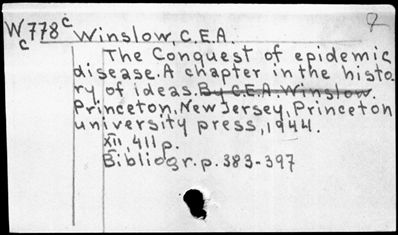 W778c Winslow, C.E.A.
c
The Conquest of epidemic
disease. A chapter in the histo
ry of ideas. By C.E.A. Winslow.
Princeton, New Jersey, Princeton
university press, 1944.
XII, 411 p.
Bibliogr. p. 383-397